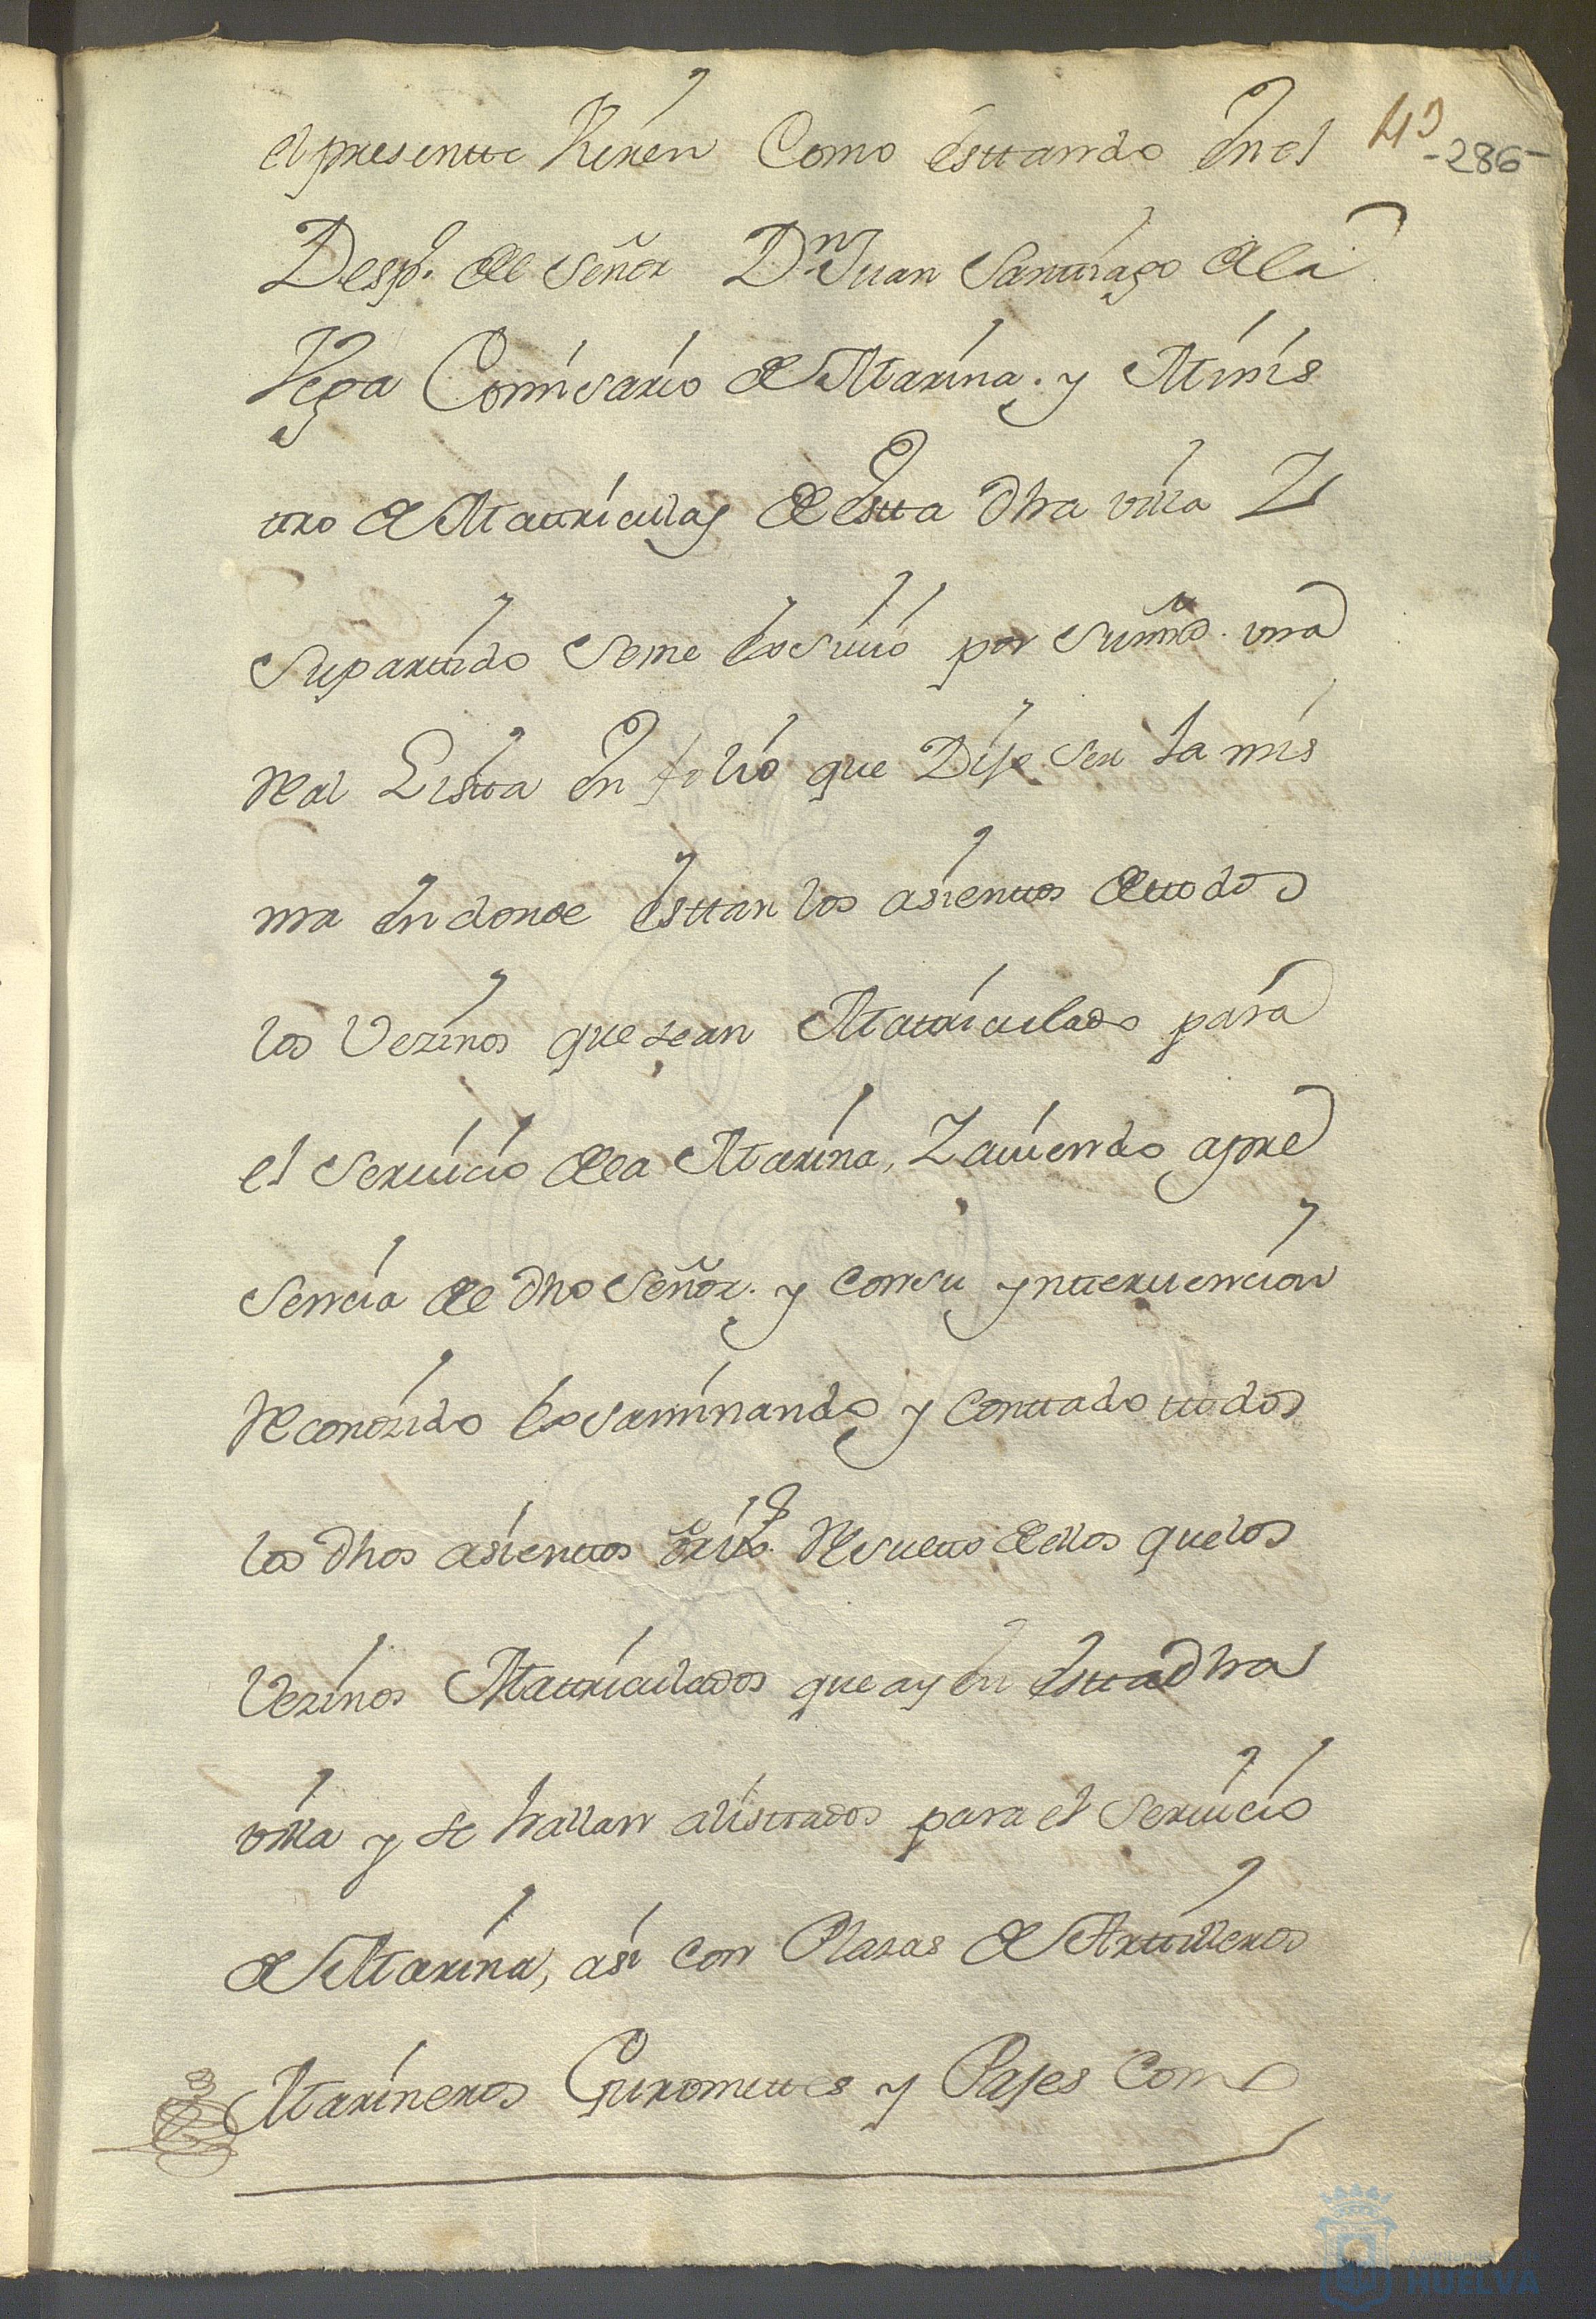 el presentte Vieren Como esttando En el
43
-286-
Desp.º de señor D.n Juan Santtiago de la
Vega Comisario de Marina. y Minis
ttro de Mattriculas de Estta dha villa Y
Su parttido se me Exsiuio por Su md. una
Real Listta En folio que Dijo ser la mis
ma En donde Esttan los asienttos de ttodos
los Vezinos que sean Mattriculado para
el Seruicio de la Marina, Y auiendo a pre
sencia de dho Señor. y con su ynteruencion
Reconozido Exsaminando y Conttado ttodos
los dhos asienttos Resultto de ellos que los
Vezinos Mattriculados que ay En Estta dha
villa y se hallan alisttados para el Seruicio
de Marina, asi con Plasas de Arttilleros
Marineros Guromettes y Pajes Com
HUELVA